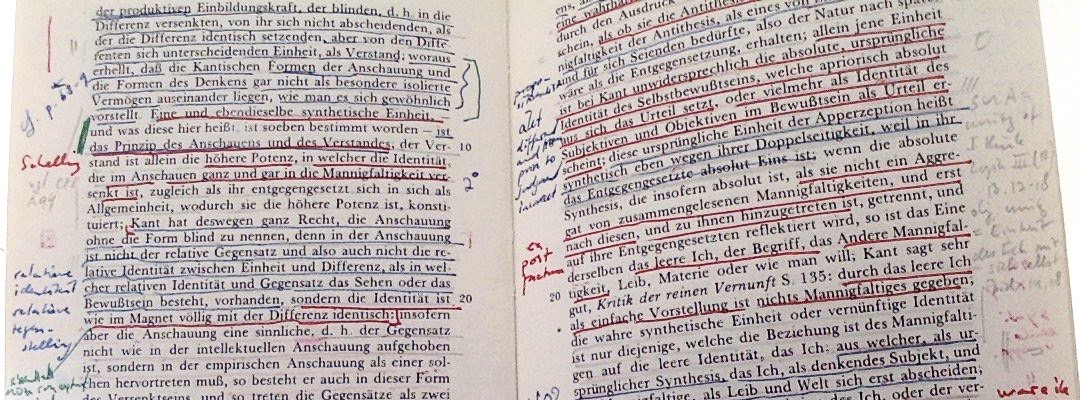 der produktiven Einbildungskraft, der blinden, d. h. in die
Differenz versenkten, von ihr sich nicht abscheidenden, als
der die Differenz identisch setzenden, aber von den Diffe-
renten sich unterscheidenden Einheit, als Verstand; woraus
erhellt, daß die Kantischen Formen der Anschauung und
die Formen des Denkens gar nicht als besondere isolierte
Vermögen auseinander liegen, wie man es sich gewöhnlich
vorstellt. Eine und ebendieselbe synthetische Einheit,
und was diese hier heißt, ist soeben bestimmt worden – ist
das Prinzip des Anschauens und des Verstandes; der Ver- 10
stand ist allein die höhere Potenz, in welcher die Identität,
die im Anschauen ganz und gar in die Mannigfaltigkeit ver-
senkt ist, zugleich als ihr entgegengesetzt sich in sich als
Allgemeinheit, wodurch sie die höhere Potenz ist, konsti-
tuiert; Kant hat deswegen ganz Recht, die Anschauung
ohne die Form blind zu nennen, denn in der Anschauung
ist nicht der relative Gegensatz und also auch nicht die re-
lative Identität zwischen Einheit und Differenz, als in wel-
cher relativen Identität und Gegensatz das Sehen oder das
Bewußtsein besteht, vorhanden, sondern die Identität ist 20
wie im Magnet völlig mit der Differenz identisch; insofern
aber die Anschauung eine sinnliche, d. h. der Gegensatz
nicht wie in der intellektuellen Anschauung aufgehoben
ist, sondern in der empirischen Anschauung als einer sol-
chen hervortreten muß, so besteht er auch in dieser Form
des Versenktseins, und so treten die Gegensätze als zwei
cf. p.
Schelling
2°
relative
identität
relative
eine wahrhaft
durch den Ausdruck
schein, als ob sie die Antithesis
nigfaltigkeit der Antithesis, als eines von
und für sich Seienden bedürfte, also der Natur nach später
wäre als die Entgegensetzung, erhalten; allein jene Einheit
ist bei Kant unwidersprechlich die absolute, ursprüngliche
Identität des Selbstbewußtseins, welche apriorisch absolut
aus sich das Urteil setzt, oder vielmehr als Identität des
Subjektiven und Objektiven im Bewußtsein als Urteil er-
scheint; diese ursprüngliche Einheit der Apperzeption heißt
synthetisch eben wegen ihrer Doppelseitigkeit, weil in ihr
das Entgegengesetzte absolut Eins ist; wenn die absolute
Synthesis, die insofern absolut ist, als sie nicht ein Aggre-
gat von zusammengelesenen Mannigfaltigkeiten, und erst
nach diesen, und zu ihnen hinzugetreten ist, getrennt, und
auf ihre Entgegengesetzten reflektiert wird, so ist das Eine
derselben das leere Ich, der Begriff, das Andere Mannigfal-
20 tigkeit, Leib, Materie oder wie man will; Kant sagt sehr
gut, Kritik der reinen Vernunft S. 135: durch das leere Ich
als einfache Vorstellung ist nichts Mannigfaltiges gegeben;
die wahre synthetische Einheit oder vernünftige Identität
ist nur diejenige, welche die Beziehung ist des Mannigfalti-
gen auf die leere Identität, das Ich; aus welcher, als ur-
sprünglicher Synthesis, das Ich, als denkendes Subjekt, und
Mannigfaltige, als Leib und Welt sich erst abscheiden;
das Ich, oder der ver-
ex
post
factum
unity of
I think
13.12.18
= Einheit
des Ich mit
sich selbst